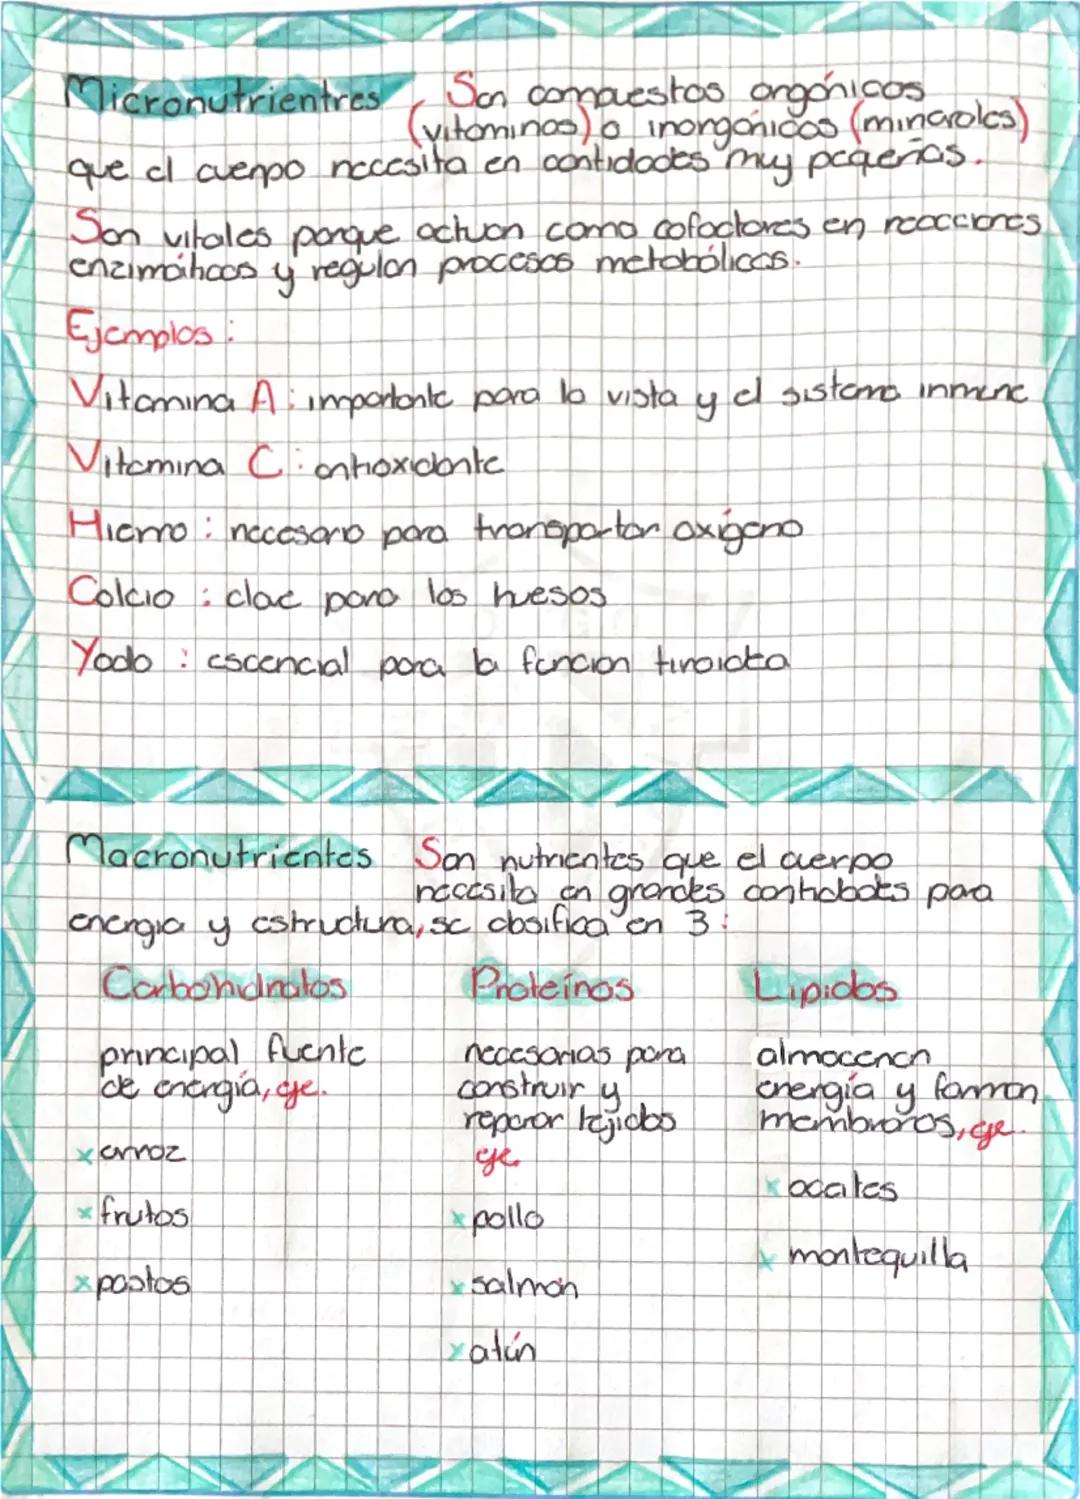 Micronutrientres Son compuestos orgánicos
(vitaminas) o inorgánicos (minerales)
que el cuerpo necesita en cantidades muy pequeñas.
Son vitales porque actuan como cofactores en reacciones
enzimáticas y regulan procesos metabólicos.
Ejemplos :
Vitamina A : importante para la vista y el sistema inmune
Vitamina C : antioxidante
Hierro : necesario para transportar oxígeno
Calcio : clae para los huesos
Yodo : escencial para la funcion tiroidea
Macronutrientes Son nutrientes que el cuerpo
necesita en grandes cantidades para
energia y estructura, se clasifica en 3 :
Carbohidratos Proteínas Lipidos
principal fuente
de energía, eje.
x arroz
x frutas
x pastas
necesarias para
construir y
reparar tejidos
eje.
x pollo
x salmón
x atún
almacenan
energía y forman
membranas, eje.
x aceites
x mantequilla